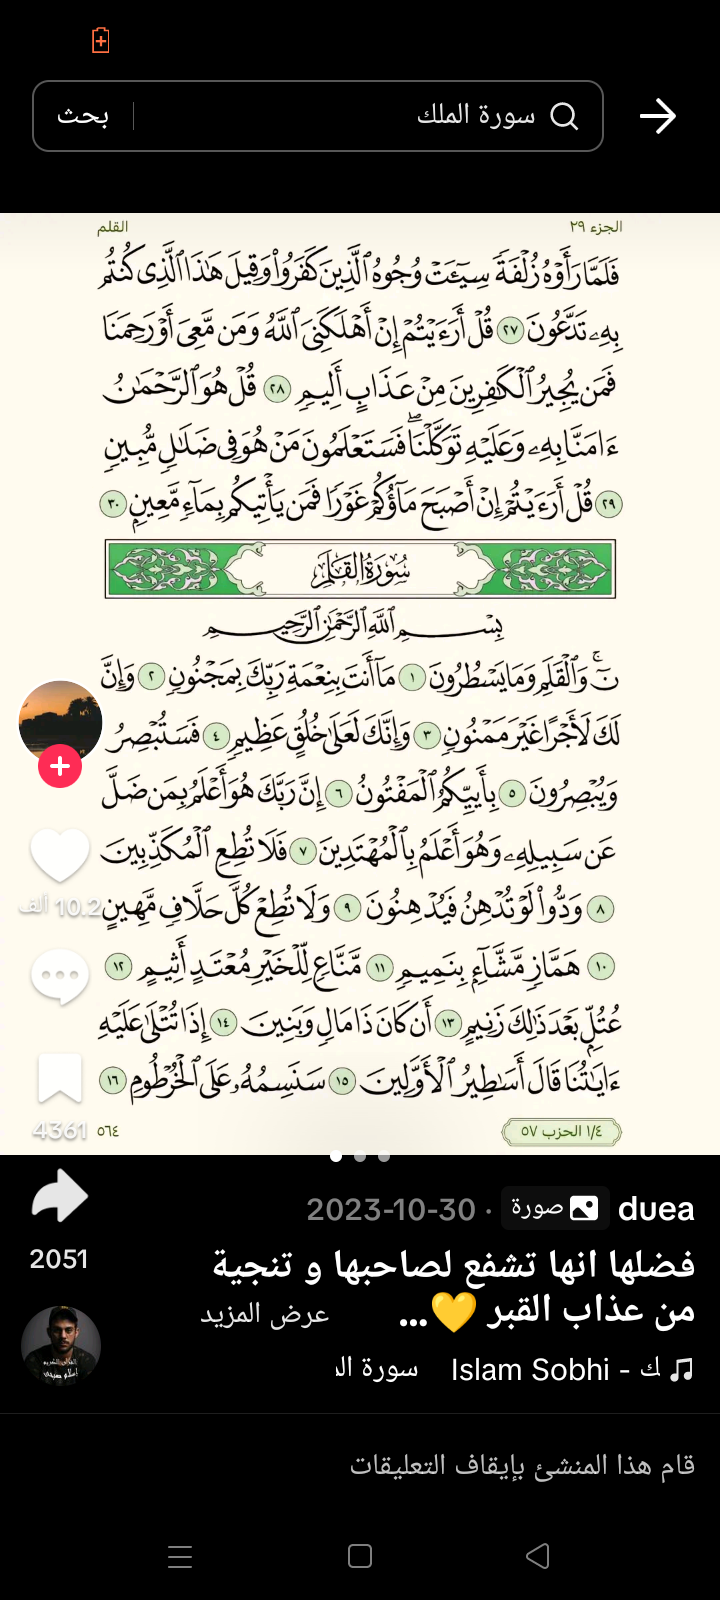 سورة الملك
بحث
الجزء ٢٩
القلم
فَلَمَّا رَأَوْهُ زُلْفَةً سِيٓـَٔتْ وُجُوهُ ٱلَّذِينَ كَفَرُوا۟ وَقِيلَ هَٰذَا ٱلَّذِى كُنتُم
بِهِۦ تَدَّعُونَ ٢٧ قُلْ أَرَءَيْتُمْ إِنْ أَهْلَكَنِىَ ٱللَّهُ وَمَن مَّعِىَ أَوْ رَحِمَنَا
فَمَن يُجِيرُ ٱلْكَٰفِرِينَ مِنْ عَذَابٍ أَلِيمٍ ٢٨ قُلْ هُوَ ٱلرَّحْمَٰنُ
ءَامَنَّا بِهِۦ وَعَلَيْهِ تَوَكَّلْنَا ۖ فَسَتَعْلَمُونَ مَنْ هُوَ فِى ضَلَٰلٍ مُّبِينٍ
٢٩ قُلْ أَرَءَيْتُمْ إِنْ أَصْبَحَ مَآؤُكُمْ غَوْرًا فَمَن يَأْتِيكُم بِمَآءٍ مَّعِينٍۭ ٣٠
سُورَةُ القَلَمِ
بِسْمِ ٱللَّهِ ٱلرَّحْمَٰنِ ٱلرَّحِيمِ
نٓ ۚ وَٱلْقَلَمِ وَمَا يَسْطُرُونَ ١ مَآ أَنتَ بِنِعْمَةِ رَبِّكَ بِمَجْنُونٍ ٢ وَإِنَّ
لَكَ لَأَجْرًا غَيْرَ مَمْنُونٍ ٣ وَإِنَّكَ لَعَلَىٰ خُلُقٍ عَظِيمٍ ٤ فَسَتُبْصِرُ
وَيُبْصِرُونَ ٥ بِأَييِّكُمُ ٱلْمَفْتُونُ ٦ إِنَّ رَبَّكَ هُوَ أَعْلَمُ بِمَن ضَلَّ
عَن سَبِيلِهِۦ وَهُوَ أَعْلَمُ بِٱلْمُهْتَدِينَ ٧ فَلَا تُطِعِ ٱلْمُكَذِّبِينَ
٨ وَدُّوا۟ لَوْ تُدْهِنُ فَيُدْهِنُونَ ٩ وَلَا تُطِعْ كُلَّ حَلَّافٍ مَّهِينٍ
١٠ هَمَّازٍ مَّشَّآءٍۭ بِنَمِيمٍ ١١ مَّنَّاعٍ لِّلْخَيْرِ مُعْتَدٍ أَثِيمٍ ١٢
عُتُلٍّۭ بَعْدَ ذَٰلِكَ زَنِيمٍ ١٣ أَن كَانَ ذَا مَالٍ وَبَنِينَ ١٤ إِذَا تُتْلَىٰ عَلَيْهِ
ءَايَٰتُنَا قَالَ أَسَٰطِيرُ ٱلْأَوَّلِينَ ١٥ سَنَسِمُهُۥ عَلَى ٱلْخُرْطُومِ ١٦
١/٤ الحزب ٥٧
٥٦٤
10.2 ألف
4361
2051
duea صورة · 2023-10-30
فضلها انها تشفع لصاحبها و تنجية
من عذاب القبر 💛... عرض المزيد
ك - Islam Sobhi سورة الـ
قام هذا المنشئ بإيقاف التعليقات